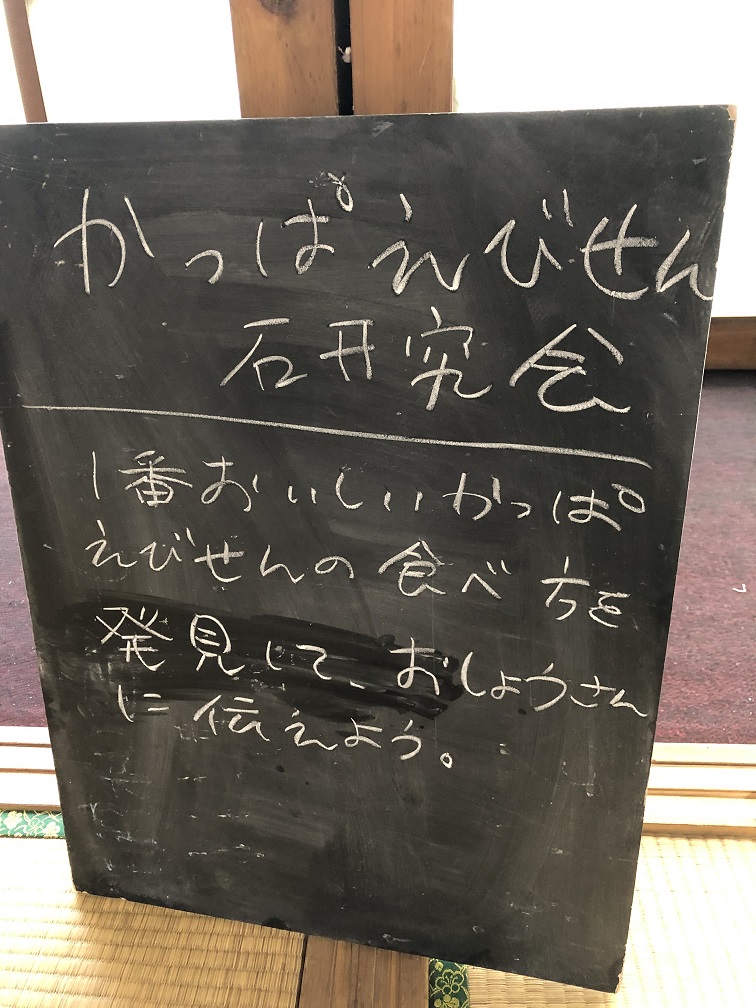 かっぱえびせん
研究会
1番おいしいかっぱ
えびせんの食べ方を
発見して、おしょうさん
に伝えよう。